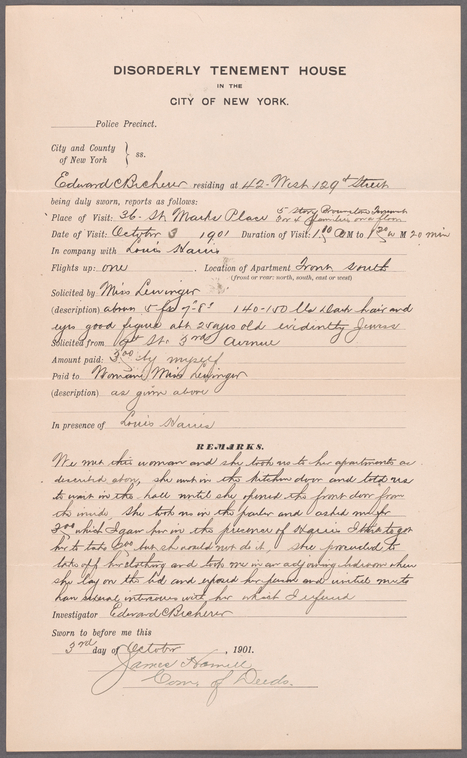 DISORDERLY TENEMENT HOUSE
IN THE
CITY OF NEW YORK.
Police Precinct.
City and County
of New York } ss.
Edward C Becherer residing at 42- West 129th Street
being duly sworn, reports as follows:
Place of Visit: 36- St. Marks Place 5 Story Tenement
2 families on a floor
Date of Visit: October 3 1901 Duration of Visit: M to M 20 min
In company with Louis Harris
Flights up: one Location of Apartment Front South
(front or rear: north, south, east or west)
Solicited by Miss Levinger
(description) about 5 ft 7"-8" 140-150 lbs Dark hair and
eyes good figure abt 25 years old evidently Jewess
Solicited from St. 3rd Avenue
Amount paid: 3.00 by myself
Paid to Woman, Miss Levinger
(description) as given above
In presence of Louis Harris
REMARKS.
We met this woman and she took us to her apartments as
described above, she went in the kitchen door and told us
to wait in the hall until she opened the front door from
the inside She took us in the parlor and asked me for
3.00 which I gave her in the presence of Harris I tried to get
her to take 2.00 but she would not do it, she proceeded to
take off her clothing and took me in an adjoining bedroom where
she lay on the bed and exposed her person and invited me to
have sexual intercourse with her which I refused
Investigator Edward C Becherer
Sworn to before me this
3rd day of October , 1901.
James Hamill
Com. of Deeds.